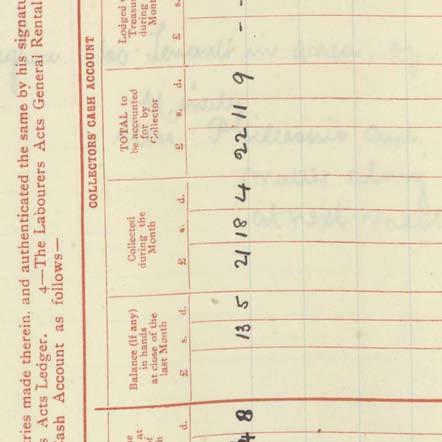 ries made therein. and authenticated the same by his signatu
s Acts Ledger. 4—The Labourers Acts General Rental
ash Account as follows—
COLLECTORS' CASH ACCOUNT
at
d.
Balance (if any)
in hands
at close of the
last Month
£ s. d.
Collected
during the
Month
£ s. d.
TOTAL to
be accounted
for by
Collector
£ s. d.
Lodged
Treasu
during
Month
£ s.
4 8 13 5 21 18 4 22 11 9 - -